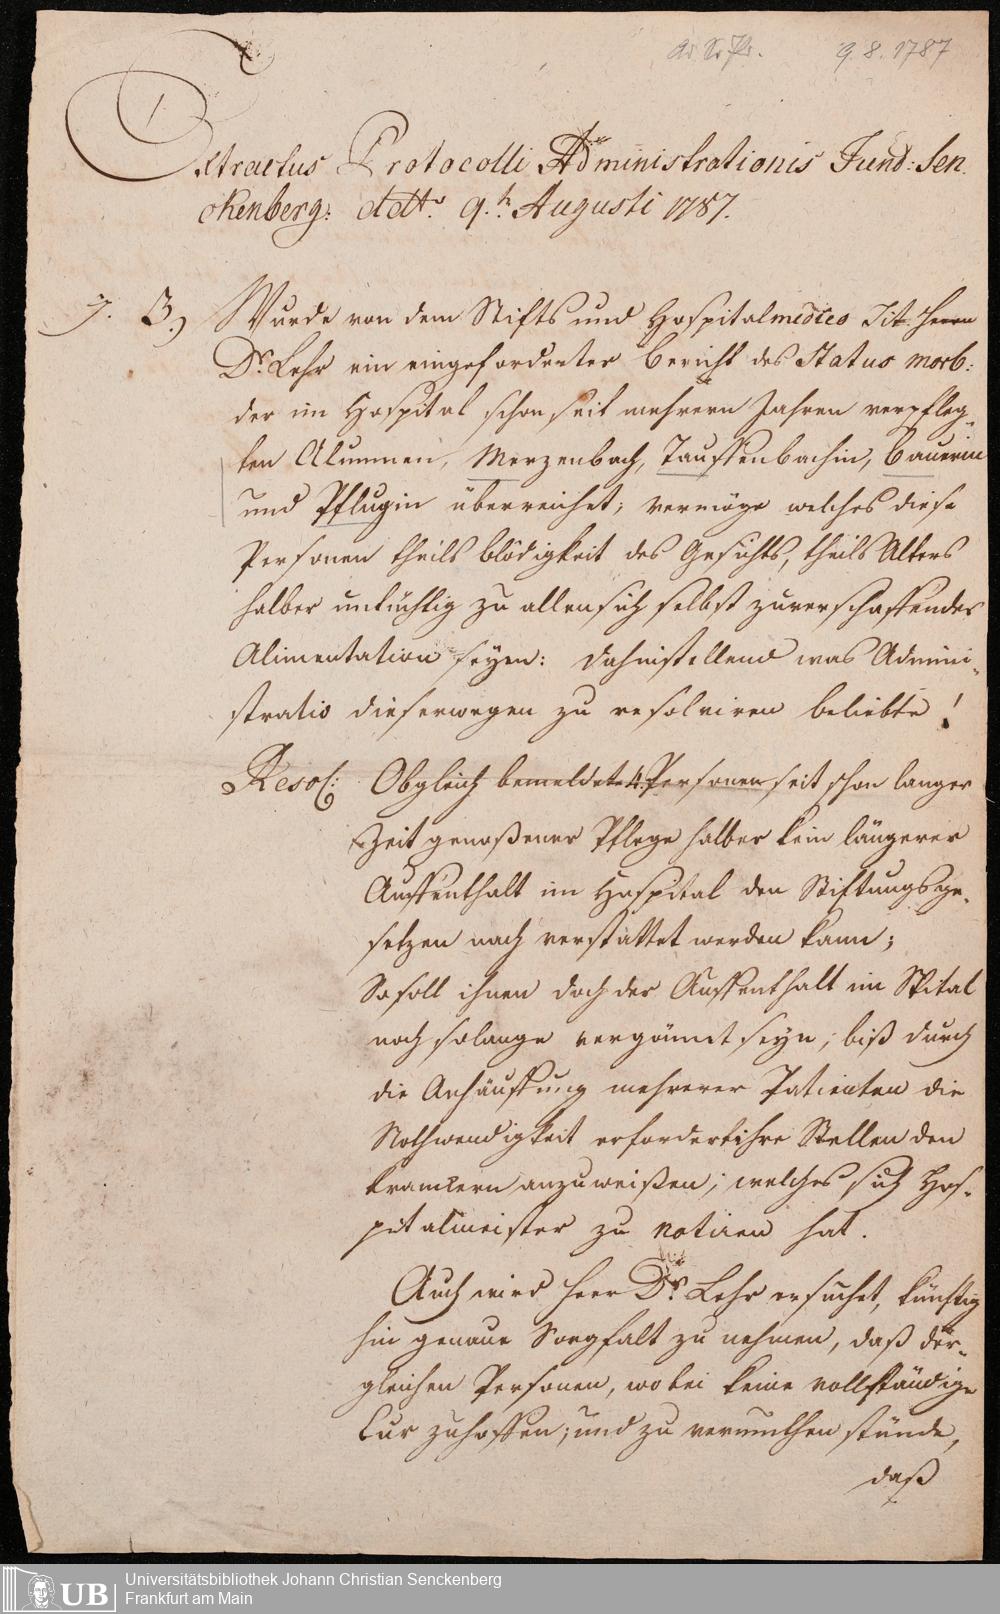 9. 8. 1787
Extractus Protocolli Administrationis Fund: Sen
ckenberg: ddt. 9.t Augusti 1787.
3.) Wurde von dem Stifts und Hospitalmedico Tit Herrn
Dr. Lehr ein eingeforderter Bericht des Status morb:
der im Hospital schon seit mehrern Jahren verpfleg-
ten Alumnen, Merzenbach, Tauffenbachin, Bauerin
und Pflugin überreichet; vermöge welches diese
Personen theils blödigkeit des Gesichts, theils Alters
halber untüchtig zu allen sich selbst zuverschaffender
Alimentation seyen: dahinstellend was Admini-
stratio dieserwegen zu resolviren beliebte!
Resol: Obgleich bemeldete 4. Personen seit schon langer
Zeit genoßener Pflege halber kein längerer
Auffenthalt im Hospital den Stiftungsge-
setzen nach verstattet werden kann;
So soll ihnen doch der Auffenthalt im Spital
noch solange vergönnet seyn, biß durch
die Anhäuffung mehrerer Patienten die
Nothwendigkeit erfordert ihre Stellen den
kranckern anzuweißen; welches sich Hos-
pitalmeister zu notiren hat.
Auch wird Herr Dr. Lehr ersuchet, künftig
hin genaue Sorgfalt zu nehmen, daß der-
gleichen Personen, wobei keine vollständige
Cur zuhoffen; und zu vermuthen stünde,
daß
UB
Universitätsbibliothek Johann Christian Senckenberg
Frankfurt am Main